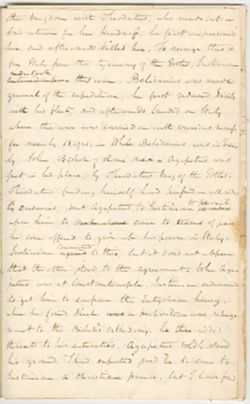 the kingdom with Theodatus, who made but a
bad return for her kindness, he first imprisoned
her, and afterwards killed her. To revenge this &
free Italy from the tyranny of the Goths, Justinian
undertook
this war. Belisarius was made
general of the expedition, he first reduced Sicily
with his fleet, and afterwards landed on Italy
where the war was carried on with various success
for nearly 18 years, While Belisarius was in Sicily
John Bishop of Rome died & Agapetus was
put in his place, by Theodatus king of the Goths.
Theodatus finding himself hard pressed on all sides
by enemies, sent Agapetus to Justinian to prevail
upon him to come to terms of peace
he even offered to give up his power in Italy.
Justinian agreed to this, but it does not appear
that the other stood to the agreement. When Aga-
petus was at Constantinople, Justinian endeavoured
to get him to confirm the Eutychian heresy,
when he found that was repug-
nant to the he then added
threats to his entreaties. Agapetus boldly stood
his ground. "I had expected" said he "to come to
Justinian a christian prince, but I have found